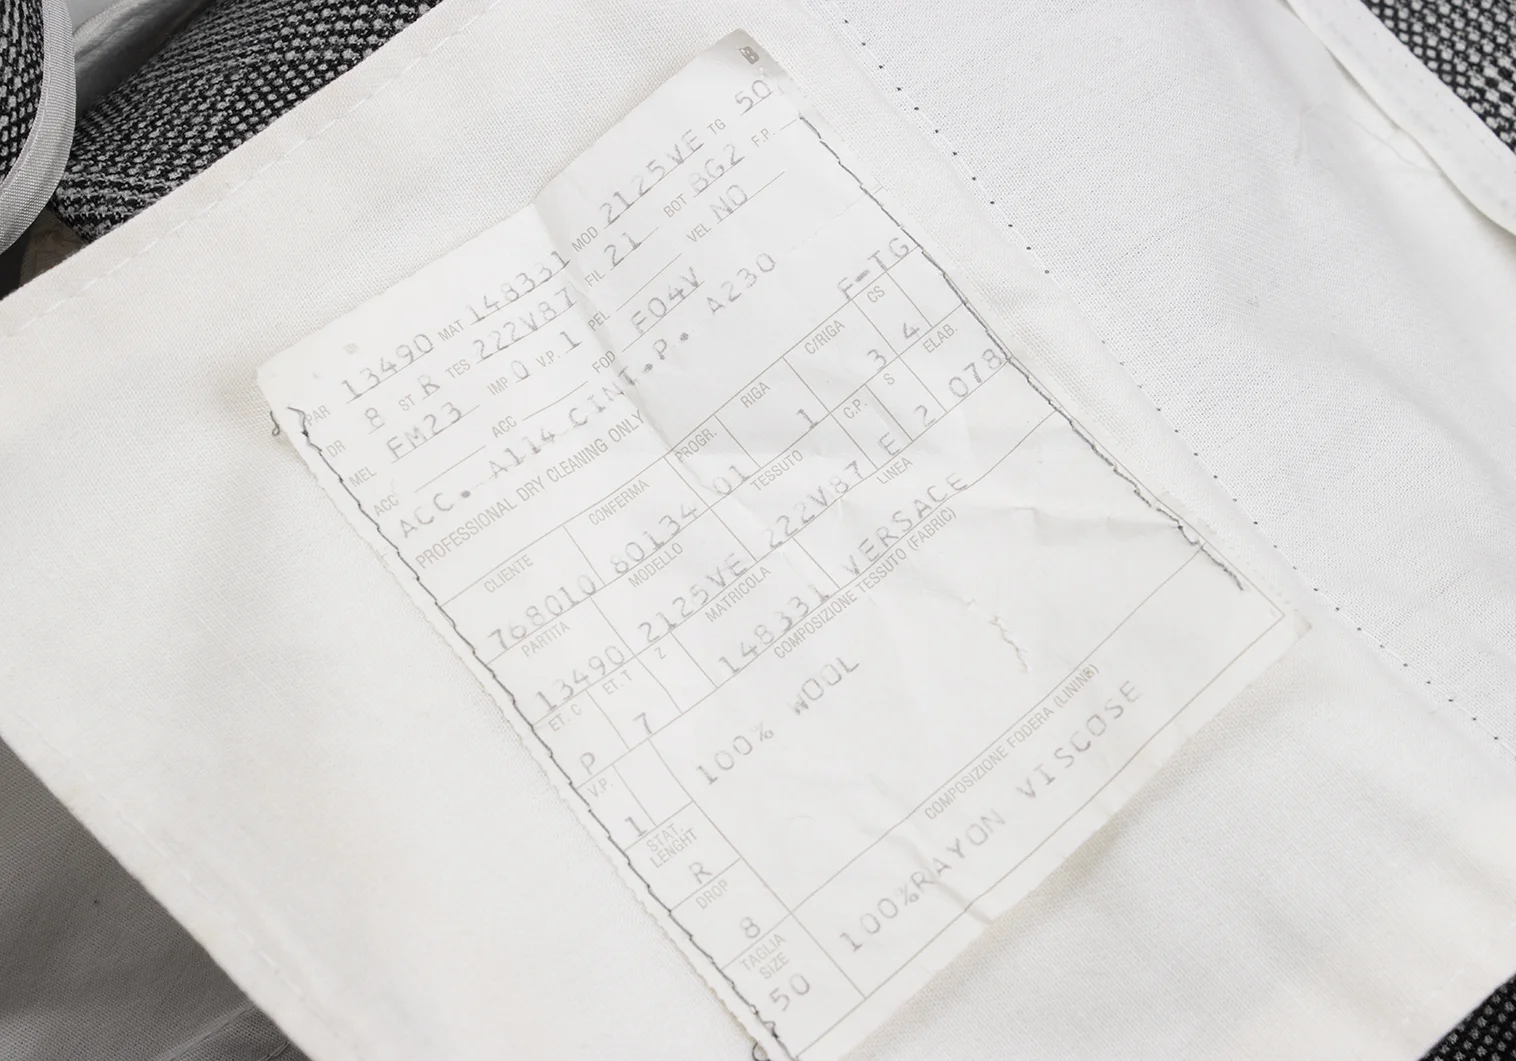 B
PAR 13490 MAT 148331 MOD 2125VE TG 50
DR 8 ST R TES 222V87 FIL 21 BOT BG2 F.P.
MEL FM23 IMP 0 V.P. 1 PEL VEL NO
ACC ACC FOD F04V
ACC. A114 CINT.P. A230
PROFESSIONAL DRY CLEANING ONLY F-TG
CLIENTE CONFERMA PROGR. RIGA C/RIGA CS
768010 80134 01 1 3 4
PARTITA MODELLO TESSUTO C.P. S ELAB.
13490 2125VE 222V87 E 2 078
ET. C ET. T Z MATRICOLA LINEA
P 7 148331 VERSACE
V.P. COMPOSIZIONE TESSUTO (FABRIC)
1 100% WOOL
STAT. LENGHT
R
DROP COMPOSIZIONE FODERA (LINING)
8 100%RAYON VISCOSE
TAGLIA SIZE
50